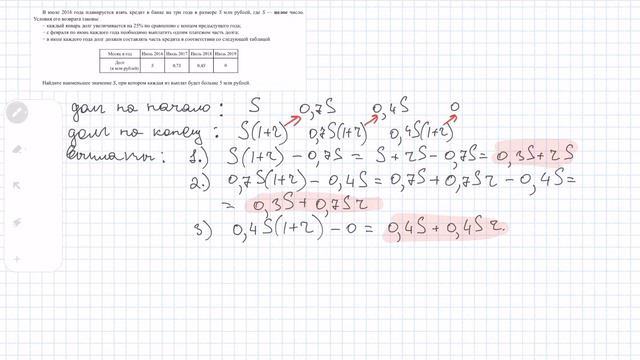 В июле 2016 года планируется взять кредит в банке на три года в размере S млн рублей, где S — целое число.
Условия его возврата таковы:
- каждый январь долг увеличивается на 25% по сравнению с концом предыдущего года;
- с февраля по июнь каждого года необходимо выплатить одним платежом часть долга;
- в июле каждого года долг должен составлять часть кредита в соответствии со следующей таблицей
Месяц и год Июль 2016 Июль 2017 Июль 2018 Июль 2019
Долг (в млн рублей) S 0,7S 0,4S 0
Найдите наименьшее значение S, при котором каждая из выплат будет больше 5 млн рублей.
долг на начало: S 0,7S 0,4S 0
долг по концу: S(1+r) 0,7S(1+r) 0,4S(1+r)
Выплаты: 1.) S(1+r) - 0,7S = S + rS - 0,7S = 0,3S + rS
2.) 0,7S(1+r) - 0,4S = 0,7S + 0,7Sr - 0,4S =
= 0,3S + 0,7Sr
3) 0,4S(1+r) - 0 = 0,4S + 0,4Sr.